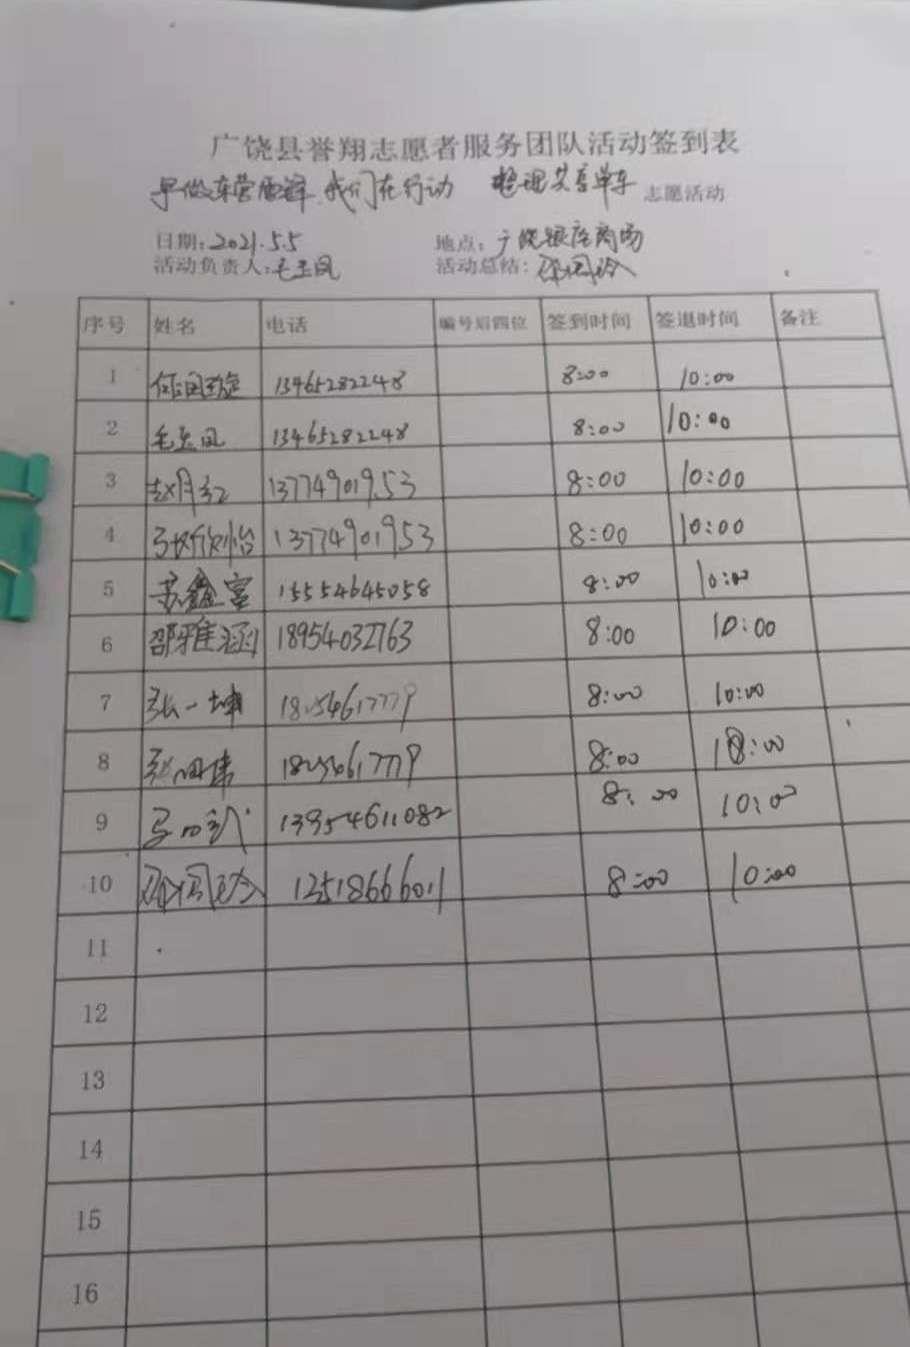 广饶县誉翔志愿者服务团队活动签到表
争做东营雷锋 我们在行动 整理共享单车 志愿活动
日期: 2021.5.5 地点: 广饶银座商场
活动负责人: 毛玉凤 活动总结:
序号 姓名 电话 编号后四位 签到时间 签退时间 备注
1 13465282248 8:00 10:00
2 毛玉凤 13465282248 8:00 10:00
3 赵月红 13774901953 8:00 10:00
4 张欣怡 13774901953 8:00 10:00
5 鑫富 15554645058 8:00 10:00
6 邵雅涵 18954032763 8:00 10:00
7 张一坤 8:00 10:00
8 8:00 10:00
9 13954611082 8:00 10:00
10 12518666011 8:00 10:00
11
12
13
14
15
16